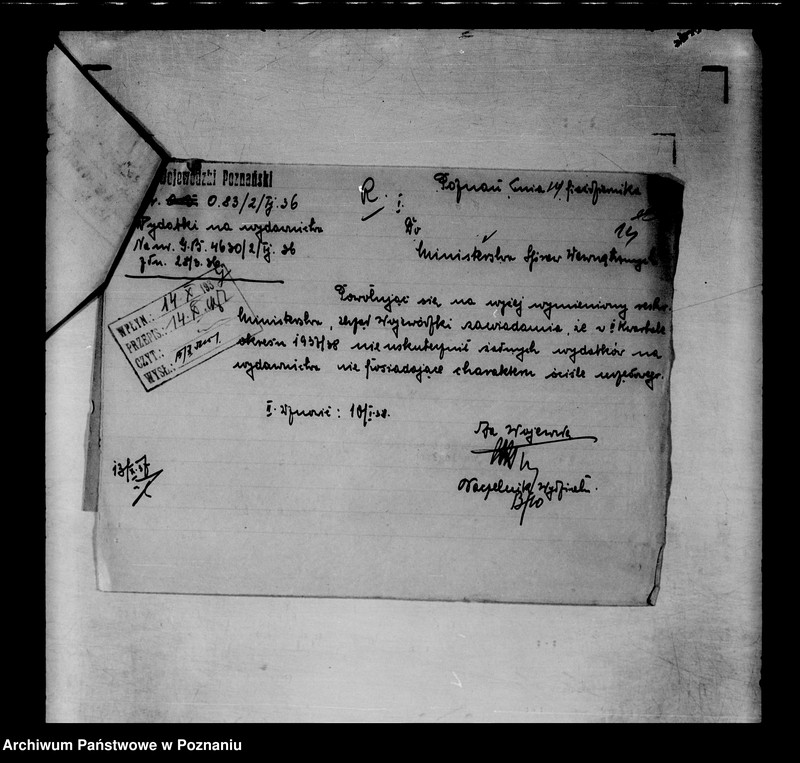 Wojewódzki Poznański
O.83/2/Tj.36
Wydatki na wydawnictwa
Na nr. 4630/2/Tj. 36
z dn. 28/3.36
R. I.
Poznań, dnia 14 października
14
Do
Ministerstwa Spraw Wewnętrznych
WPŁYN.: 14 X 193
PRZEPIS.: 14.X.
CZYT.:
WYSŁ.:
Powołując się na wyżej wymieniony
Ministerstwa, Urząd Wojewódzki zawiadamia, że w I Kwartale
okresu 1937/38 nie uskutecznił żadnych wydatków na
wydawnictwa nie posiadające charakteru ściśle urzędowego.
II. Wznowić: 10/I.38.
Za Wojewodę
Naczelnik Wydziału.
13/X.37
Archiwum Państwowe w Poznaniu